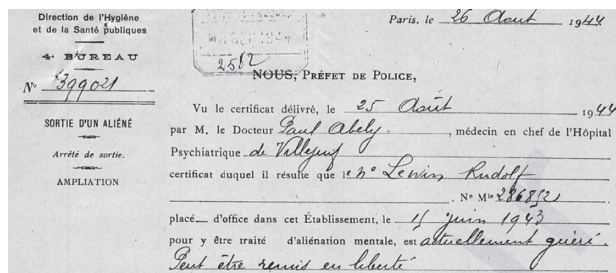 Direction de l'Hygiène
et de la Santé publiques
4e BUREAU
No 399021
SORTIE D'UN ALIÉNÉ
Arrêté de sortie.
AMPLIATION
1944
2582
Paris, le 26 Aout 1944
NOUS, PRÉFET DE POLICE,
Vu le certificat délivré, le 25 Août 1944
par M. le Docteur Paul Abely, médecin en chef de l'Hôpital
Psychiatrique de Villejuif
certificat duquel il résulte que le né Lewin Rudolf
No Mle
placé d'office dans cet Établissement, le juin 1943
pour y être traité d'aliénation mentale, est actuellement guéri.
Peut être remis en liberté